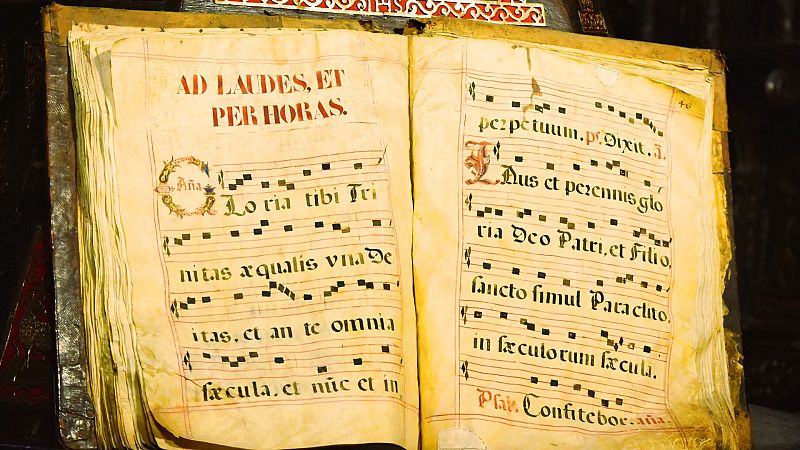 IHS
AD LAUDES, ET
PER HORAS.
Aña
Gloria tibi Tri
nitas æqualis vna De
itas, et an te omnia
sæcula, et nũc et in
46
perpetuum. ps. Dixit. ã.
Laus et perennis glo
ria Deo Patri, et Filio,
sancto simul Paraclito,
in sæculorum sæcula.
Psal. Confitebor. aña.